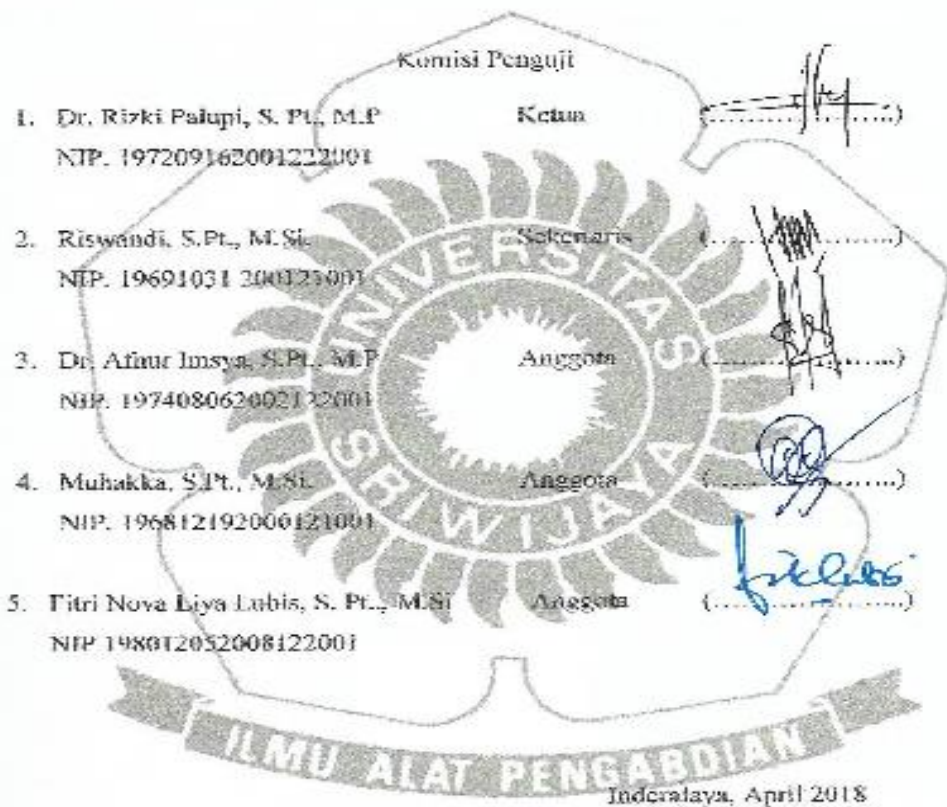 Komisi Penguji
1. Dr. Rizki Palupi, S. Pt., M.P Ketua (..............)
NIP. 197209162001222001
2. Riswandi, S.Pt., M.Si. Sekretaris (..............)
NIP. 19691031 200121001
3. Dr. Afnur Imsya, S.Pt., M.P Anggota (..............)
NIP. 197408062002122001
4. Muhakka, S.Pt., M.Si. Anggota (..............)
NIP. 196812192000121001
5. Fitri Nova Liya Lubis, S. Pt., M.Si Anggota (..............)
NIP 198012052008122001
UNIVERSITAS
SRIWIJAYA
ILMU ALAT PENGABDIAN
Inderalaya, April 2018